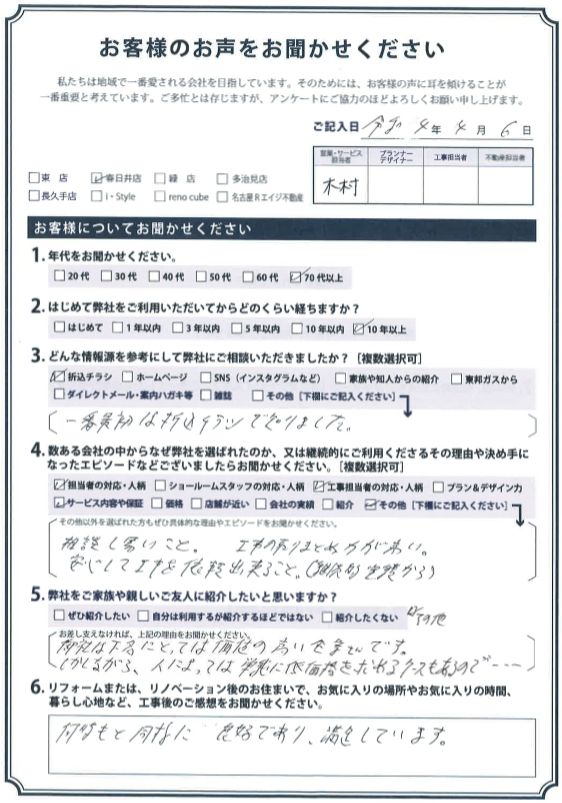 お客様のお声をお聞かせください
私たちは地域で一番愛される会社を目指しています。そのためには、お客様の声に耳を傾けることが
一番重要と考えています。ご多忙とは存じますが、アンケートにご協力のほどよろしくお願い申し上げます。
ご記入日 令和 4 年 4 月 6 日
営業・サービス担当者 プランナーデザイナー 工事担当者 不動産担当者
木村
東 店 春日井店 緑 店 多治見店
長久手店 i・Style reno cube 名古屋Rエイジ不動産
お客様についてお聞かせください
1. 年代をお聞かせください。
20代 30代 40代 50代 60代 70代以上
2. はじめて弊社をご利用いただいてからどのくらい経ちますか？
はじめて 1年以内 3年以内 5年以内 10年以内 10年以上
3. どんな情報源を参考にして弊社にご相談いただきましたか？［複数選択可］
折込チラシ ホームページ SNS（インスタグラムなど） 家族や知人からの紹介 東邦ガスから
ダイレクトメール・案内ハガキ等 雑誌 その他［下欄にご記入ください］
一番最初は折込チラシで知りました。
4. 数ある会社の中からなぜ弊社を選ばれたのか、又は継続的にご利用くださるその理由や決め手に
なったエピソードなどございましたらお聞かせください。［複数選択可］
担当者の対応・人柄 ショールームスタッフの対応・人柄 工事担当者の対応・人柄 プラン&デザイン力
サービス内容や保証 価格 店舗が近い 会社の実績 紹介 その他［下欄にご記入ください］
その他以外を選ばれた方もぜひ具体的な理由やエピソードをお聞かせください。
相談し易いこと。 工事の取りまとめ方が良い。
安心して工事を依頼出来ること。
5. 弊社をご家族や親しいご友人に紹介したいと思いますか？
ぜひ紹介したい 自分は利用するが紹介するほどではない 紹介したくない その他
お差し支えなければ、上記の理由をお聞かせください。
御社は下名にとっては価値の高い
しかしながら、人によっては 低価格を求めるケースもあるので----
6. リフォームまたは、リノベーション後のお住まいで、お気に入りの場所やお気に入りの時間、
暮らし心地など、工事後のご感想をお聞かせください。
何時もと同様に 良好であり、満足しています。